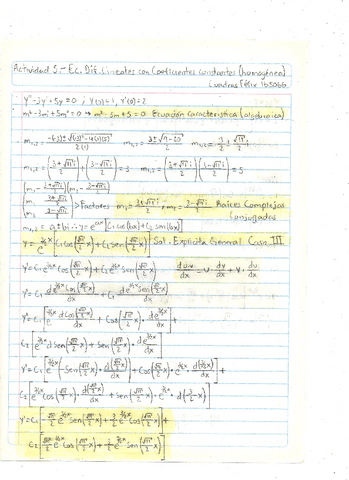 Actividad 5.- Ec. Dif. Lineales con Coeficientes constantes (homogénea)
Cuadras Félix
y'' - 3y' + 5y = 0 ; y(0)=1, y'(0)=2
m² - 3m + 5m⁰ = 0 → m² - 3m + 5 = 0 Ecuación característica (algebraica)
m₁,₂ = (-(-3) ± √((-3)² - 4(1)(5)))/2(1) m₁,₂ = (3 ± √(9-20))/2 m₁,₂ = 3/2 ± √11 i/2
m₁,₂ = (3+√11 i/2) + (3-√11 i/2) = 3 m₁,₂ = (3+√11 i/2)(3-√11 i/2) = 5
(m₁ - 3+√11 i/2)(m₂ - 3-√11 i/2)
> Factores m₁ = 3+√11 i/2, m₂ = 3-√11 i/2 Raíces Complejos
Conjugados
m₁,₂ = a ± bi ∴ y = e^ax [C₁ cos(bx) + C₂ sen(bx)]
y = e^3/2x [C₁ Cos(√11/2 x) + C₂ Sen(√11/2 x)] Sol. Explícita General Caso III
y' = C₁ e^3/2x Cos(√11/2 x) + C₂ e^3/2x Sen(√11/2 x) du·v/dx = u · dv/dx + v · du/dx
y' = C₁ d e^3/2x Cos(√11/2 x)/dx + C₂ d e^3/2x Sen(√11/2 x)/dx
y' = C₁ [e^3/2x d Cos(√11/2 x)/dx + Cos(√11/2 x) · d e^3/2x/dx] +
C₂ [e^3/2x d Sen(√11/2 x) + Sen(√11/2 x) · d e^3/2x/dx]
y' = C₁ [e^3/2x - Sen(√11/2 x) · d(√11/2 x)/dx + Cos(√11/2 x) · e^3/2x · d(3/2 x)/dx] +
C₂ [e^3/2x Cos(√11/2 x) · d(√11/2 x)/dx + Sen(√11/2 x) · e^3/2x · d(3/2 x)]
y' = C₁ [-√11/2 e^3/2x Sen(√11/2 x) + 3/2 e^3/2x Cos(√11/2 x)] +
C₂ [√11/2 e^3/2x Cos(√11/2 x) + 3/2 e^3/2x Sen(√11/2 x)]